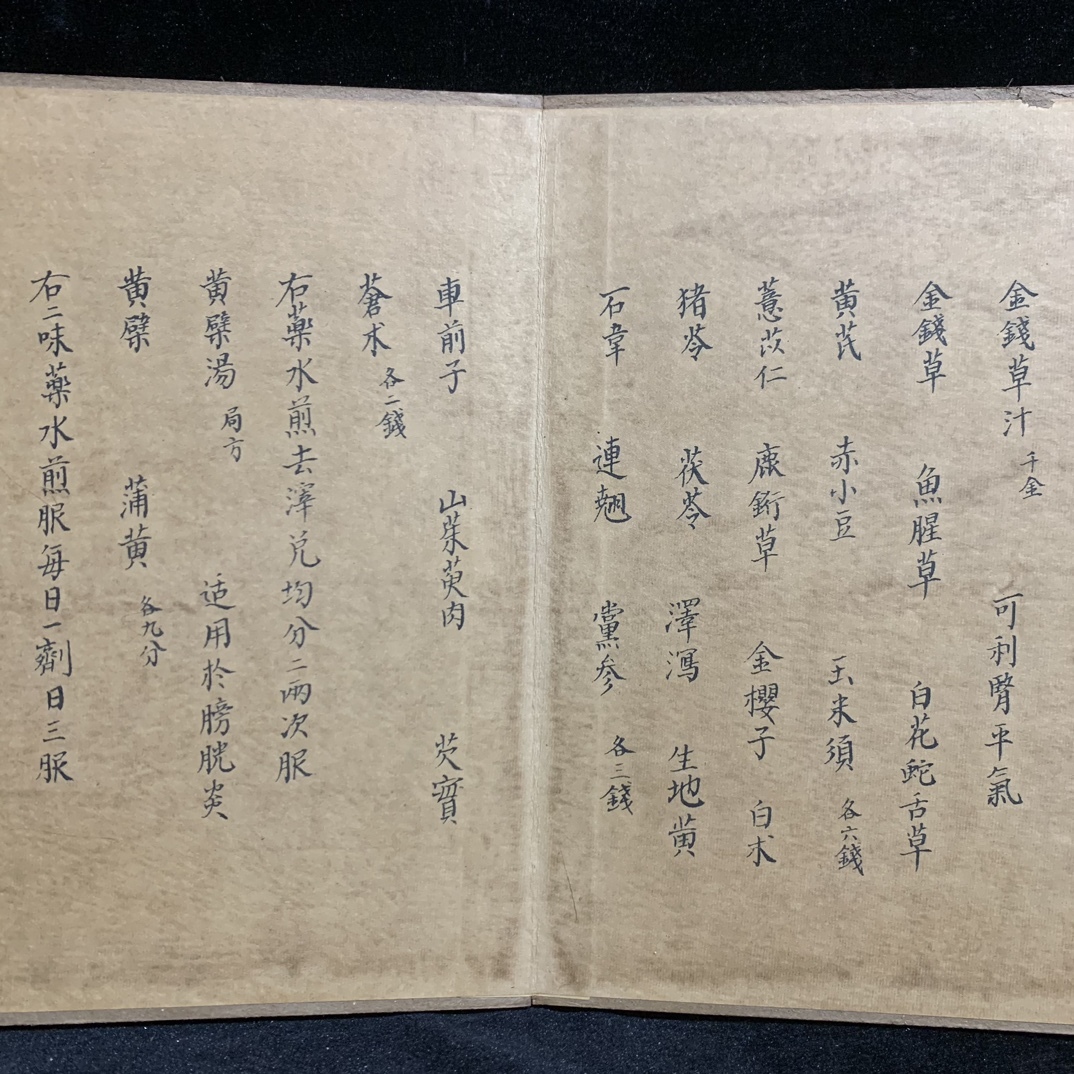 金錢草汁 千金 可利腎平氣
金錢草 魚腥草 白花蛇舌草
黄芪 赤小豆 玉米須 各六錢
薏苡仁 鹿銜草 金櫻子 白术
猪苓 茯苓 澤瀉 生地黄
石韋 連翹 黨参 各三錢
車前子 山茱萸肉 芡實
蒼术 各二錢
右藥水煎去滓兑均分二兩次服
黄檗湯 局方 适用於膀胱炎
黄檗 蒲黄 各九分
右二味藥水煎服每日一劑日三服